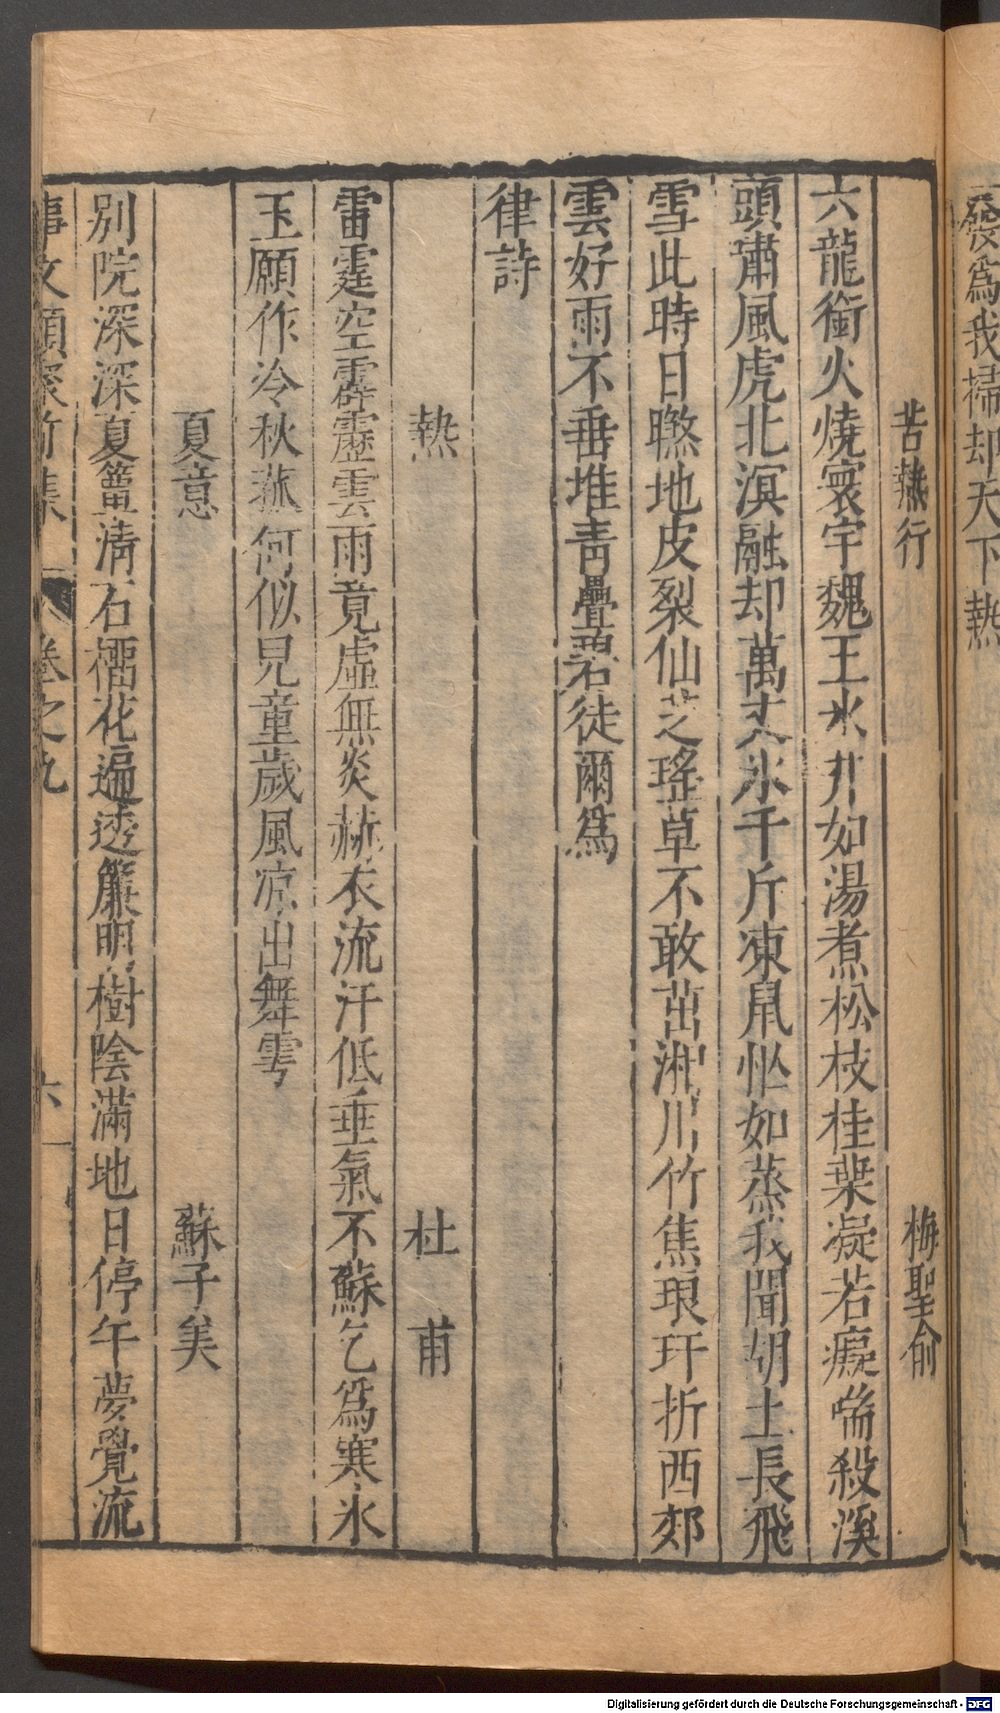 發爲我掃却天下熱
苦熱行　梅聖俞
六龍銜火燒寰宇魏王氷井如湯煮松枝桂葉凝若癡喘殺溪
頭嘯風虎北溟融却萬丈氷千斤凍鼠忙如蒸我聞胡土長飛
雪此時日𣊬地皮裂仙芝瑤草不敢茁湘川竹焦琅玕折西郊
雲好雨不垂堆青疊碧徒爾爲
律詩
熱　杜甫
雷霆空霹靂雲雨竟虛無炎赫衣流汗低垂氣不蘇乞爲寒水
玉願作冷秋菰何似兒童歲風凉出舞雩
夏意　蘇子美
別院深深夏簟清石榴花遍透簾明樹陰滿地日停午夢覺流
事文類聚前集　卷之九　六
Digitalisierung gefördert durch die Deutsche Forschungsgemeinschaft - DFG